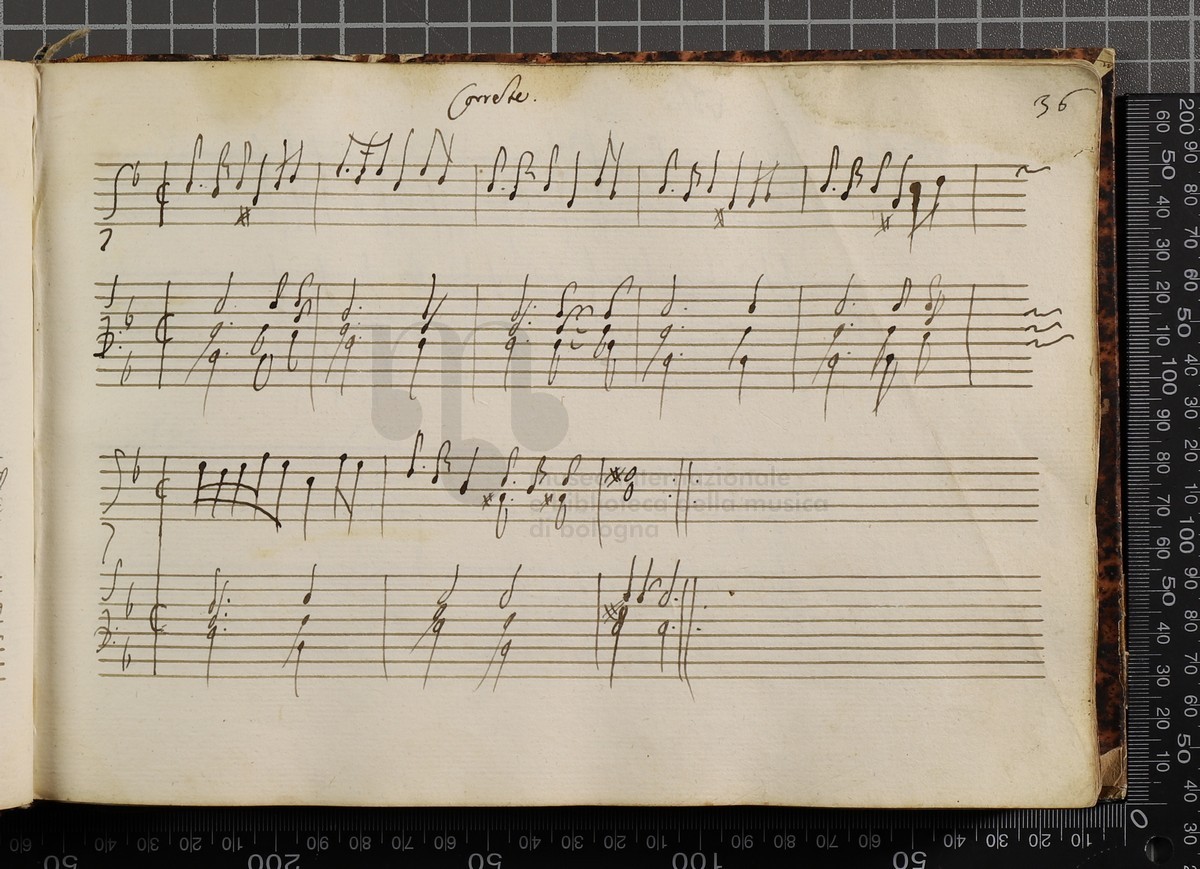 Corrente.
36
museo internazionale
e biblioteca della musica
di bologna